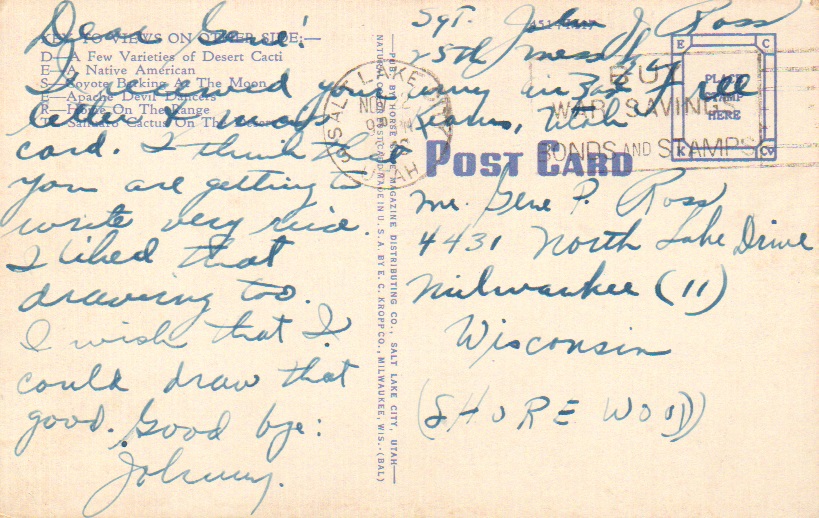 Dear Gene:
I received your
card. I think that
you are getting to
write very nice.
I liked that
drawing too.
I wish that I
could draw that
good. Good bye:
Johnny.
KEY TO VIEWS ON OTHER SIDE:—
D—A Few Varieties of Desert Cacti
E—A Native American
S—Coyote Barking At The Moon
E—Apache Devil Dancers
R—Home On The Range
T—Sahuaro Cactus On The Desert
—PUB. BY HORSE MAGAZINE DISTRIBUTING CO., SALT LAKE CITY, UTAH—
POST CARD MADE IN U.S.A. BY E. C. KROPP CO., MILWAUKEE, WIS.-(BAL)
SALT LAKE
NOV
UTAH
BUY
WAR SAVINGS
BONDS AND STAMPS
E C
PLACE
STAMP
HERE
K Co
Sgt. John J Ross
25th
Kearns, Utah
POST CARD
Mr. Gene P. Ross
4431 North Lake Drive
Milwaukee (11)
Wisconsin
(SHOREWOOD)